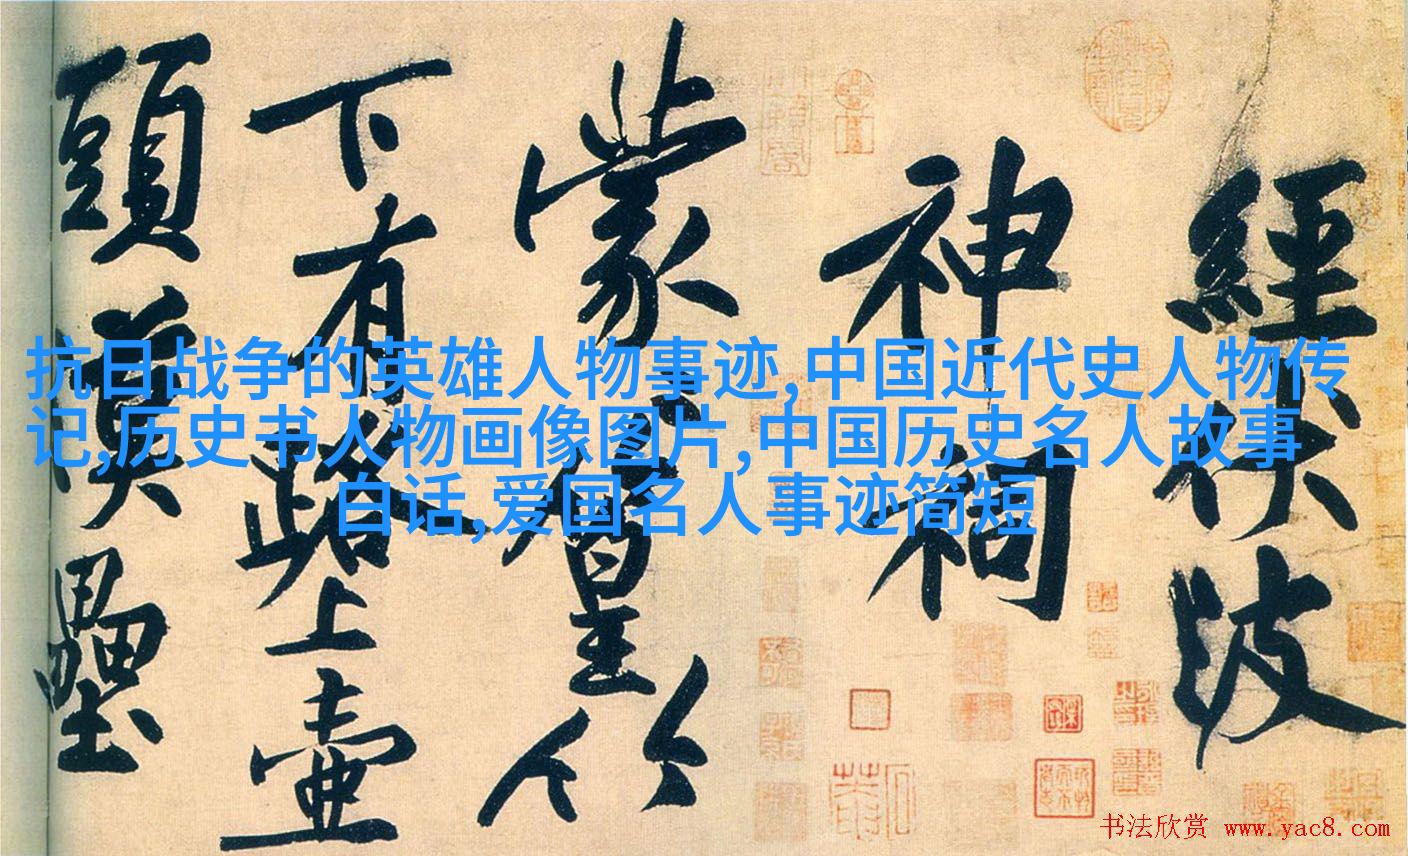 經伏波
神祠
蒙々篁竹
下有路上壺
頭漢壘
抗日战争的英雄人物事迹,中国近代史人物传
记,历史书人物画像图片,中国历史名人故事
白话,爱国名人事迹简短
书法欣赏 www.yac8.com